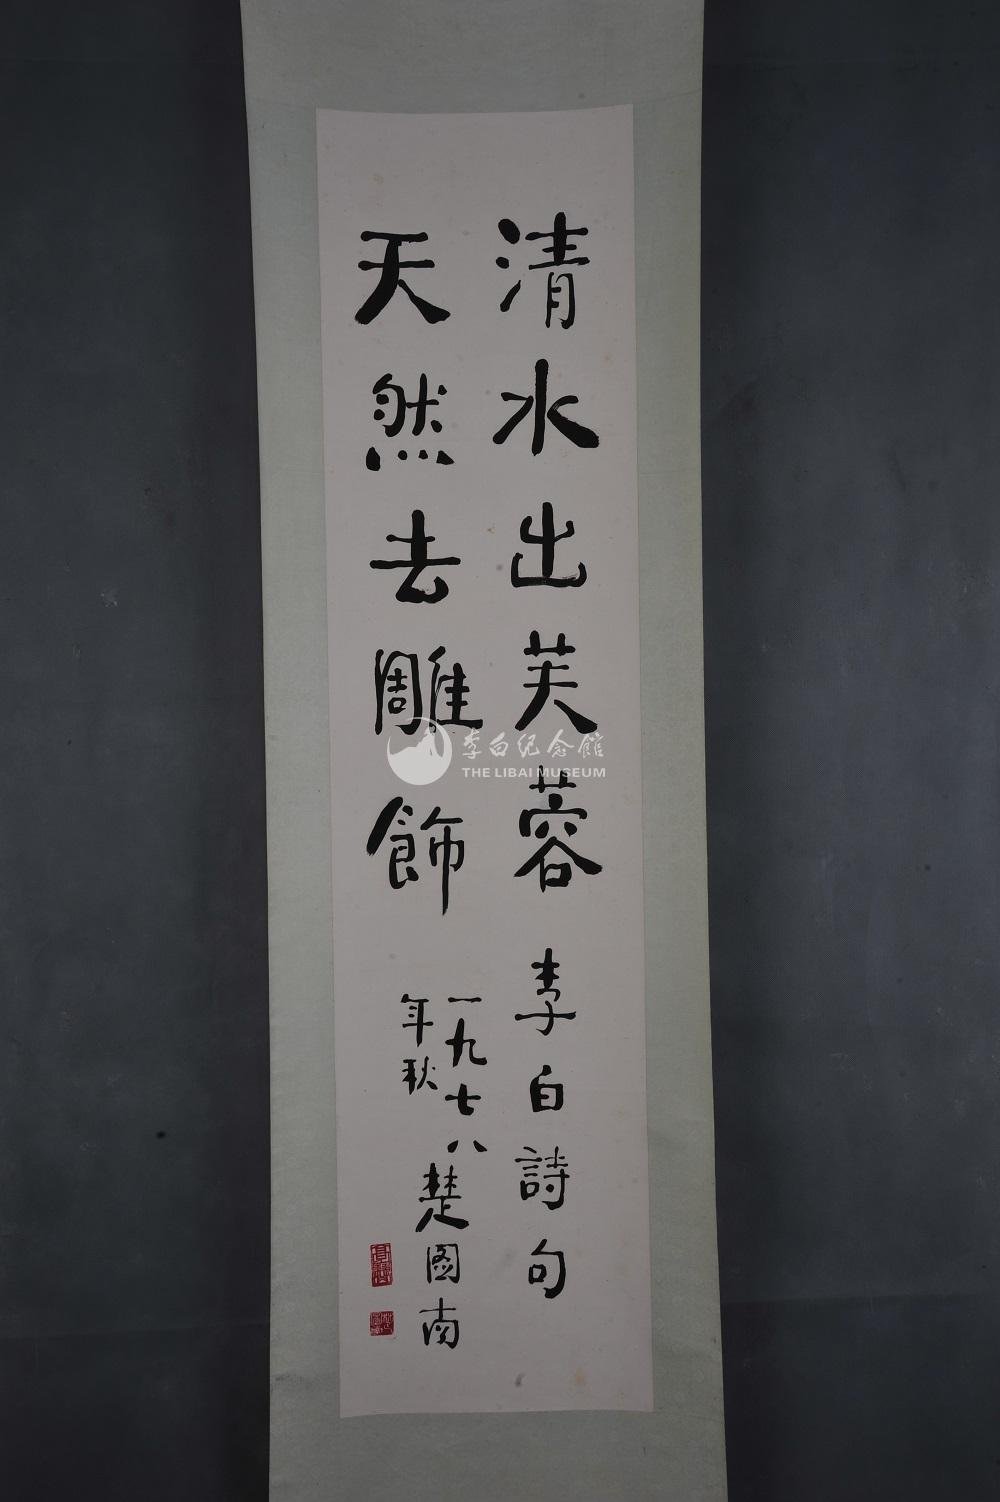 清水出芙蓉 李白詩句
天然去雕飾
一九七八
年秋
楚图南
李白纪念馆
THE LIBAI MUSEUM